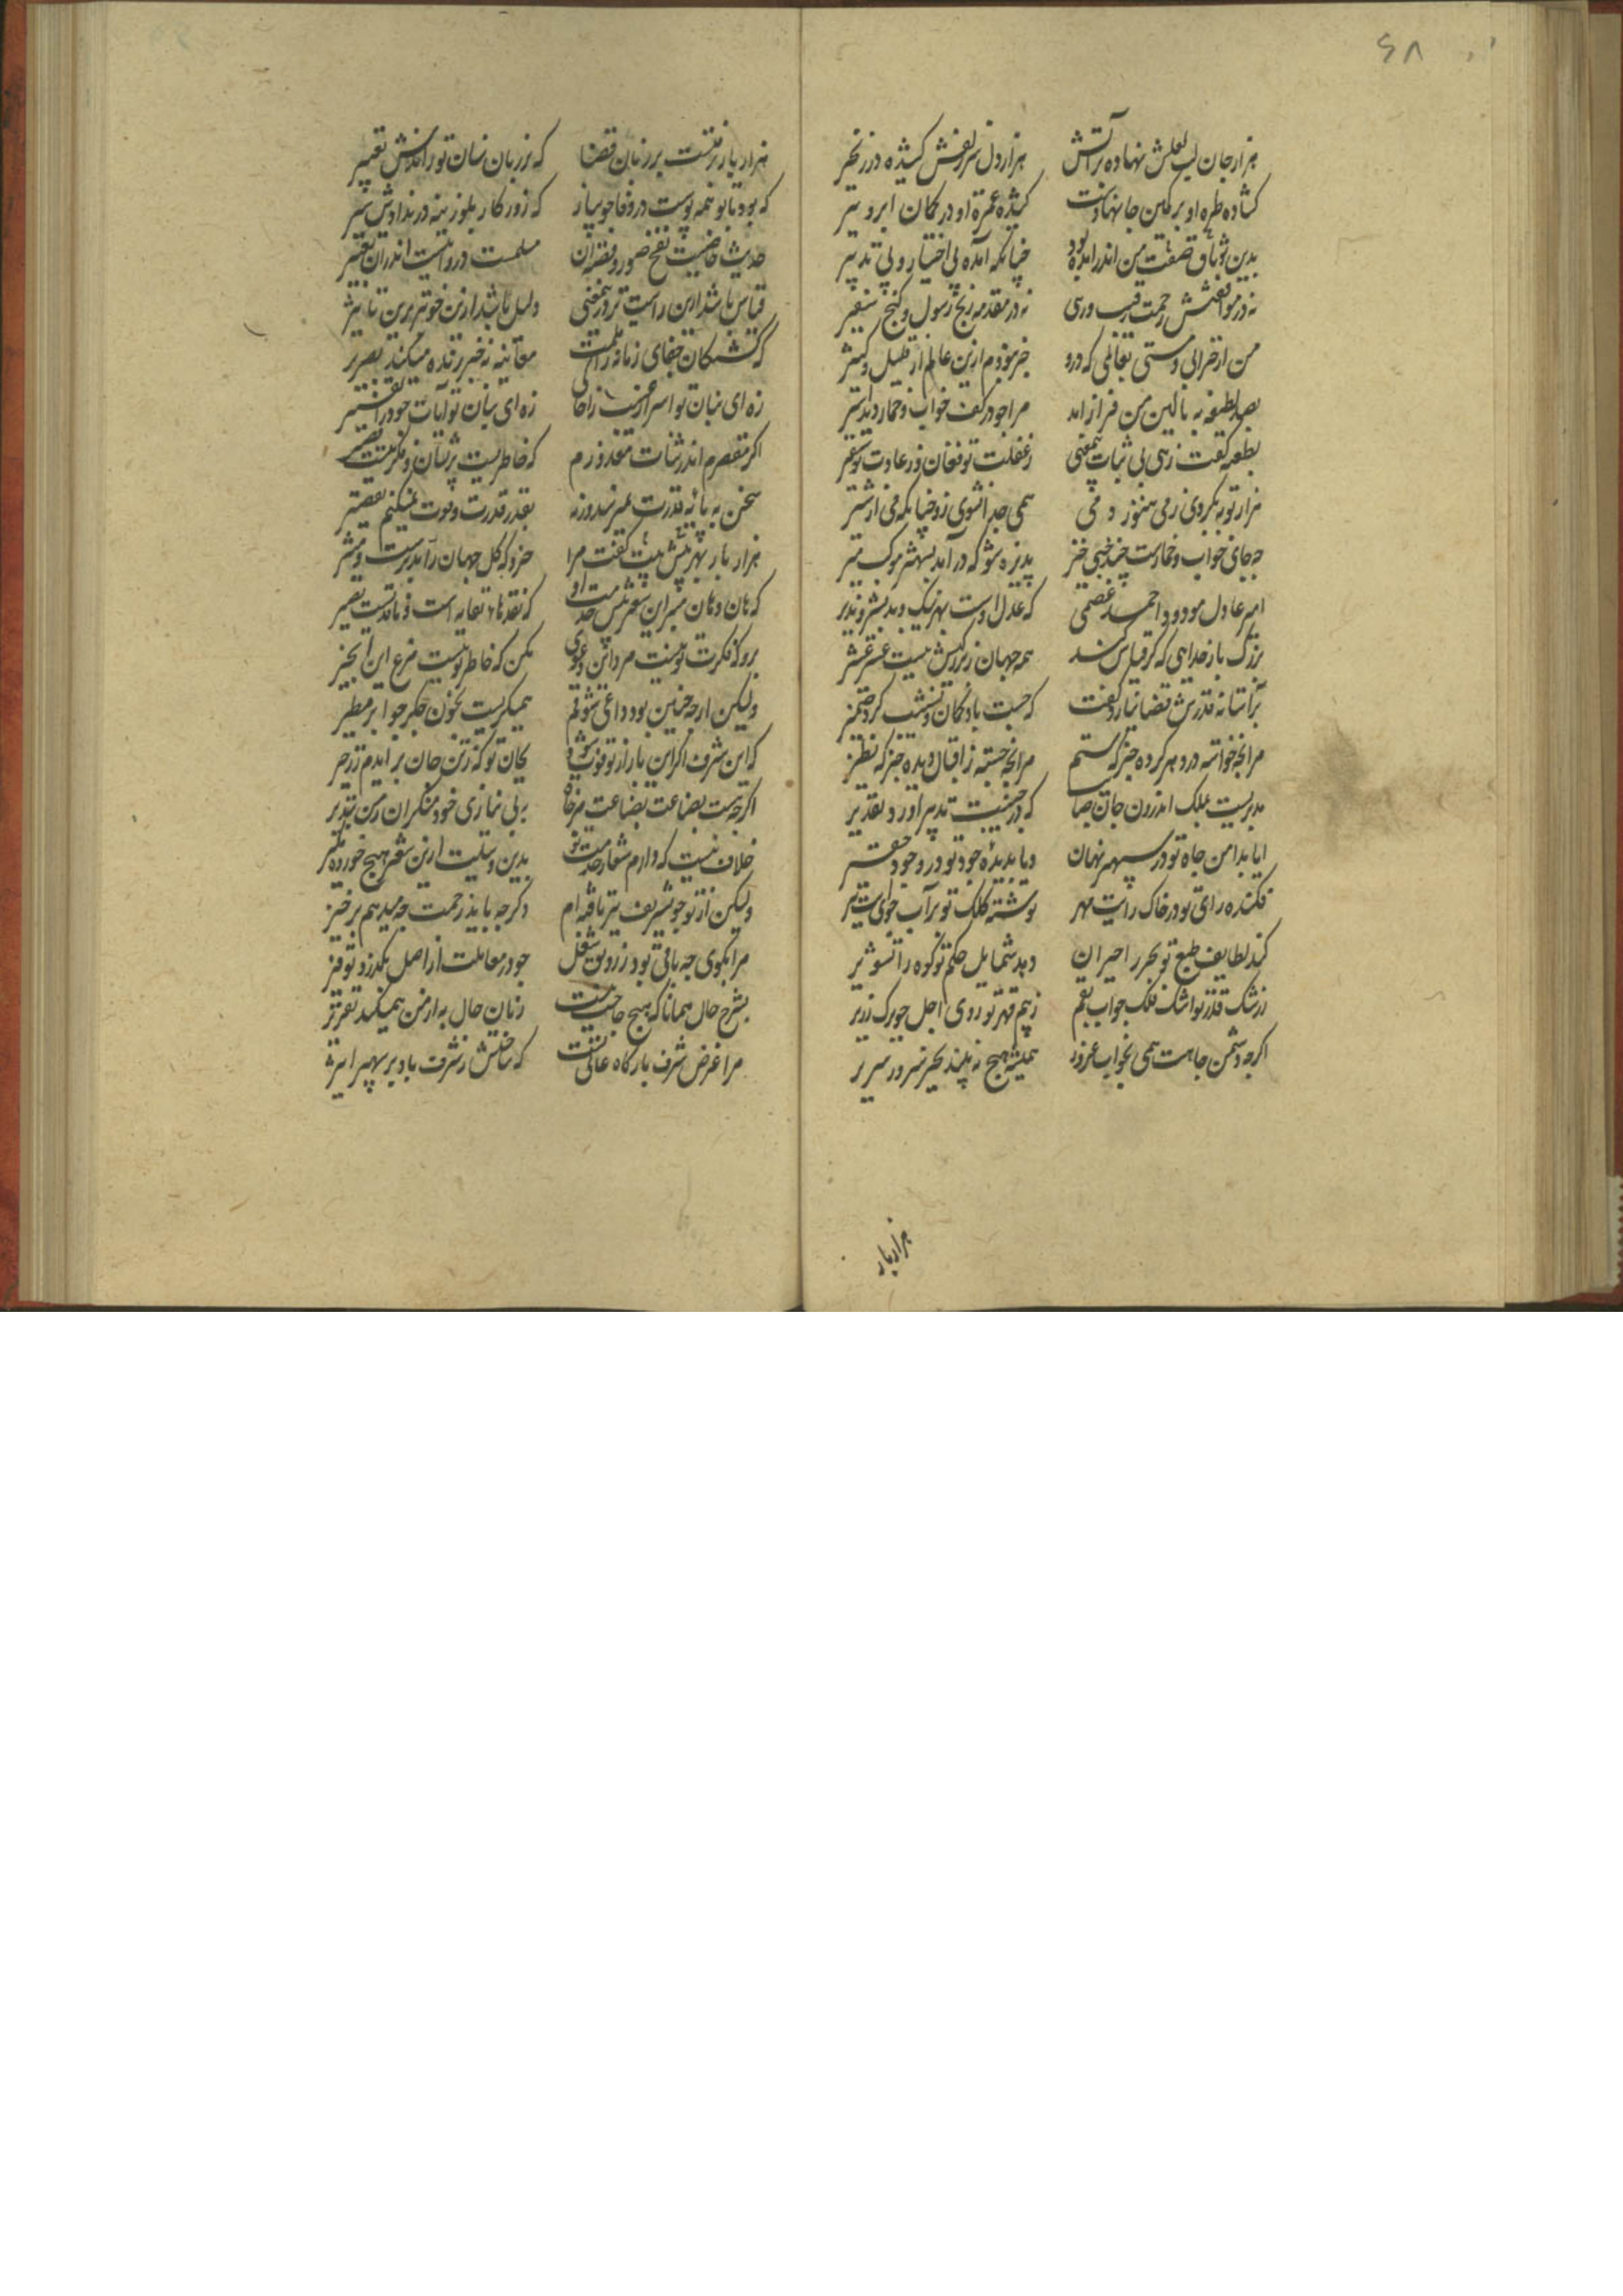 ۶۸
هزار جان لب لعلش نهاده بر آتش هزار دل سر زلفش کشیده در زنجیر
کشاده طره او بر کمین جانها دست کشیده غمزه او در کمان ابرو تیر
بدین صفت من اندر آمد چنانکه آمده بی اختیار و بی تدبیر
نه در موافقتش زحمت رقیب و رهی نه در مقدمه رنج رسول و کنج سفیر
من از خرابی و مستی بعالمی که درو خبر نبودم ازین عالم از قلیل و کثیر
بصد لطیفه به بالین من فراز آمد مرا چو در کف خواب و خمار دید اسیر
بطعنه کفت زهی بی ثبات بی معنی ز غفلت تو فغان و ز عادت تو نفیر
هزار توبه بکردی ز می هنوز دمی همی جدا نشوی زو چنانکه می از شیر
چه جای خواب و خمارست چند خسبی خیز پذیره شو که درآمد بشهر موکب میر
امیر عادل مودود احمد عصمی که عدل اوست بهر نیک و بد بشیر و نذیر
بزرک بار خدایی که کر قیاس کنند همه جهان ز بزرکیش نیست عشر عشیر
بر آستانه قدرش قضا نیارد کفت که حسب باد کمان و نشست کرد ضمیر
مر آنچه خواسته در دهر کرده جز که ستم مر آنچه جسته ز اقبال دیده جز که نظیر
مدبریست بملک اندرون چنان صایب که در جنیبت تدبیر او رود تقدیر
ایا بدامن جاه تو در سپهر نهان و یا بدیده جود تو در وجود حقیر
فکنده رای تو در خاک رایت مهر نوشته کلک تو بر آب تیر
کند لطایف طبع تو بحر را حیران دهد شمایل حکم تو کوه را تشویر
ز رشک قدر تو اشک فلک چو آب بقم ز بیم قهر تو روی اجل چو برک زریر
اکرچه دشمن جاهت همی بخواب غرور همیشه هیچ نه بیند بجز سرور و سریر
هزار بار
هزار بار نبشتست بر زبان قضا که بر زبان سنان تو راندش تعبیر
که بود با تو همه پوست در وفا چو پیاز که روزکار بلوزینه در ندادش سیر
حدیث خاصیت نفخ صور و فضل آن مسلمست و در و نیست اندر آن تغییر
قیاس باشد ازین راست تر در معنی دلیل باشد ازین خوبتر برین تاثیر
که کشتکان جفای زمانه را قلمت معاینه نه خبر زنده میکند بصریر
زه ای بنان تو اسرار غیب را حاکی زه ای بیان تو آیات جود را تفسیر
اکر مقصرم اندر ثنات معذورم که خاطریست پریشان و فکرتیست قصیر
سخن به پایه قدرت نمیرسد ورنه بقدر قدرت و قوت نمیکنم تقصیر
هزار بار بهر بیت بیش کفت مرا خرد که کل جهان را مدبرست و مشیر
که هان و هان مبر این شعر پیش خدمت او که نقدها نفایه است و ناقدست بصیر
برو که فکرت تو نیست مرد این دعوی مکن که خاطر تو نیست مرغ این انجیر
ولیکن ار چه چنین بود داعی شوقم همیکریست بخون جکر چو ابر مطیر
که این شرف اکر این بار از تو فوت شود بجان تو که ز تن جان برآیدم ز زحیر
اکر چه هست بضاعت بضاعت مزجاة به بی نیازی خود منکر آن ز من بپذیر
خلاف نیست که دارم شعار خدمت تو بدین وسیلت ازین شعر هیچ خورده مکیر
ولیکن از تو چو تشریف تربیت یافته ام وکر چه باید زحمت چه میدهم بر خیر
مرا بکوی چه باقی بود ز رونق شغل چو در معاملت از اصل بکذرد توفیر
بشرح حال همانا که هیچ حاجت نیست زبان حال به از من همیکند تقریر
مرا غرض شرف بارکاه عالی تست که ساحتش ز شرف باد بر سپهر اثیر